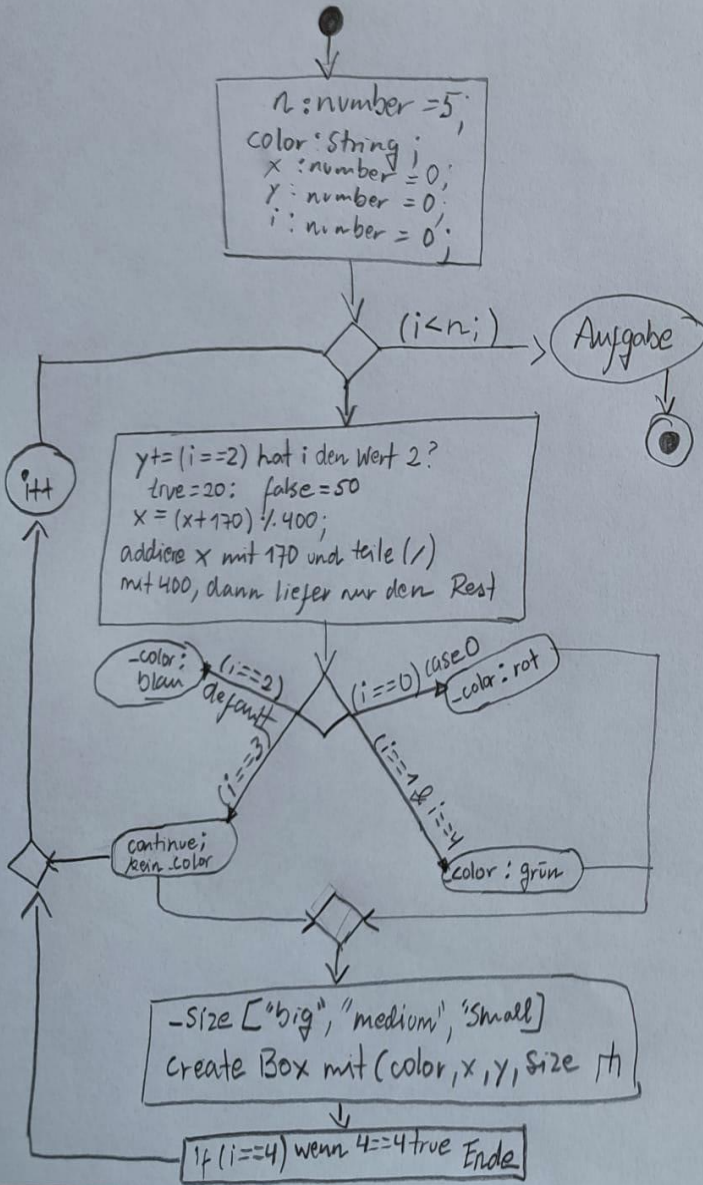 n : number = 5;
color : String;
x : number = 0;
y : number = 0;
i : number = 0;
(i<n;)
Aufgabe
i++
y+=(i==2) hat i den Wert 2?
true=20; false=50
x = (x+170) % 400;
addiere x mit 170 und teile (/)
mit 400, dann liefer nur den Rest
_color:
blau
(i==2)
default
(i==0) case0
_color: rot
(i==3)
(i==1 & i==4
continue;
kein_color
_color : grün
_Size ["big", "medium", "Small]
Create Box mit (color, x, y, Size
if (i==4) wenn 4==4 true Ende